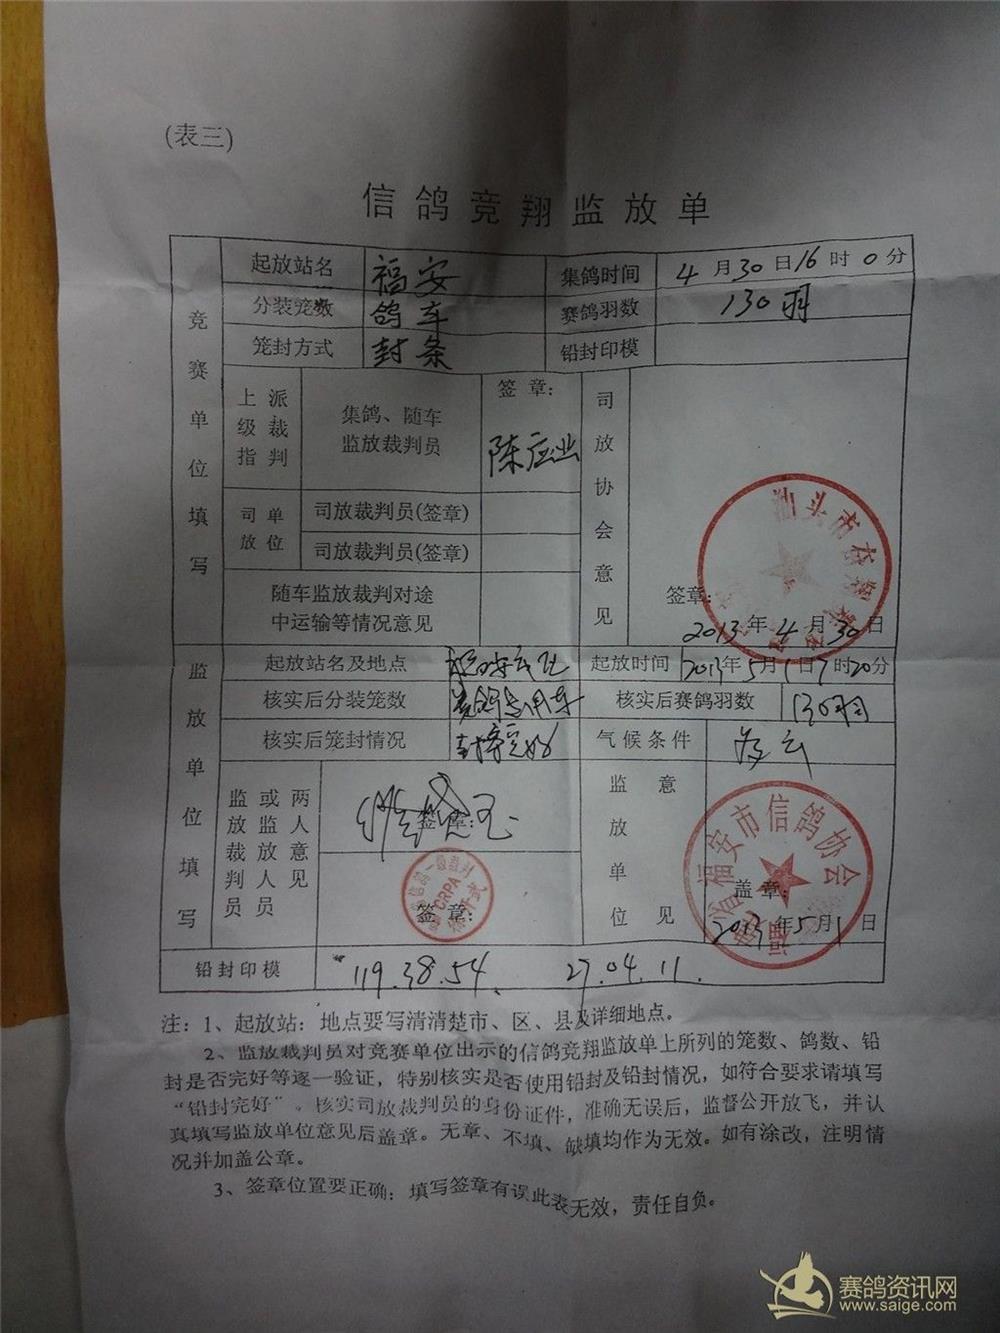 (表三)
信鸽竞翔监放单
竞赛单位填写
起放站名 福安 集鸽时间 4月30日16时0分
分装笼数 鸽车 赛鸽羽数 130羽
笼封方式 封条 铅封印模
上级指派裁判 集鸽、随车监放裁判员 签章: 陈应业
司放单位 司放裁判员(签章)
司放裁判员(签章)
随车监放裁判对途
中运输等情况意见
司放协会意见
汕头市
签章:
2013年4月30日
监放单位填写
起放站名及地点 起放时间 2013年5月1日7时20分
核实后分装笼数 赛鸽专用车 核实后赛鸽羽数 130羽
核实后笼封情况 封条完好 气候条件 多云
监放裁判员或监放人两人意见
签章:
信鸽一级裁判
CRPA
签章:
监放单位意见
福建省福安市信鸽协会
盖章:
2013年5月1日
铅封印模 119.38.54. 27.04.11.
注:1、起放站:地点要写清清楚市、区、县及详细地点。
2、监放裁判员对竞赛单位出示的信鸽竞翔监放单上所列的笼数、鸽数、铅
封是否完好等逐一验证,特别核实是否使用铅封及铅封情况,如符合要求请填写
“铅封完好”。核实司放裁判员的身份证件,准确无误后,监督公开放飞,并认
真填写监放单位意见后盖章。无章、不填、缺填均作为无效。如有涂改,注明情
况并加盖公章。
3、签章位置要正确:填写签章有误此表无效,责任自负。
赛鸽资讯网
www.saige.com